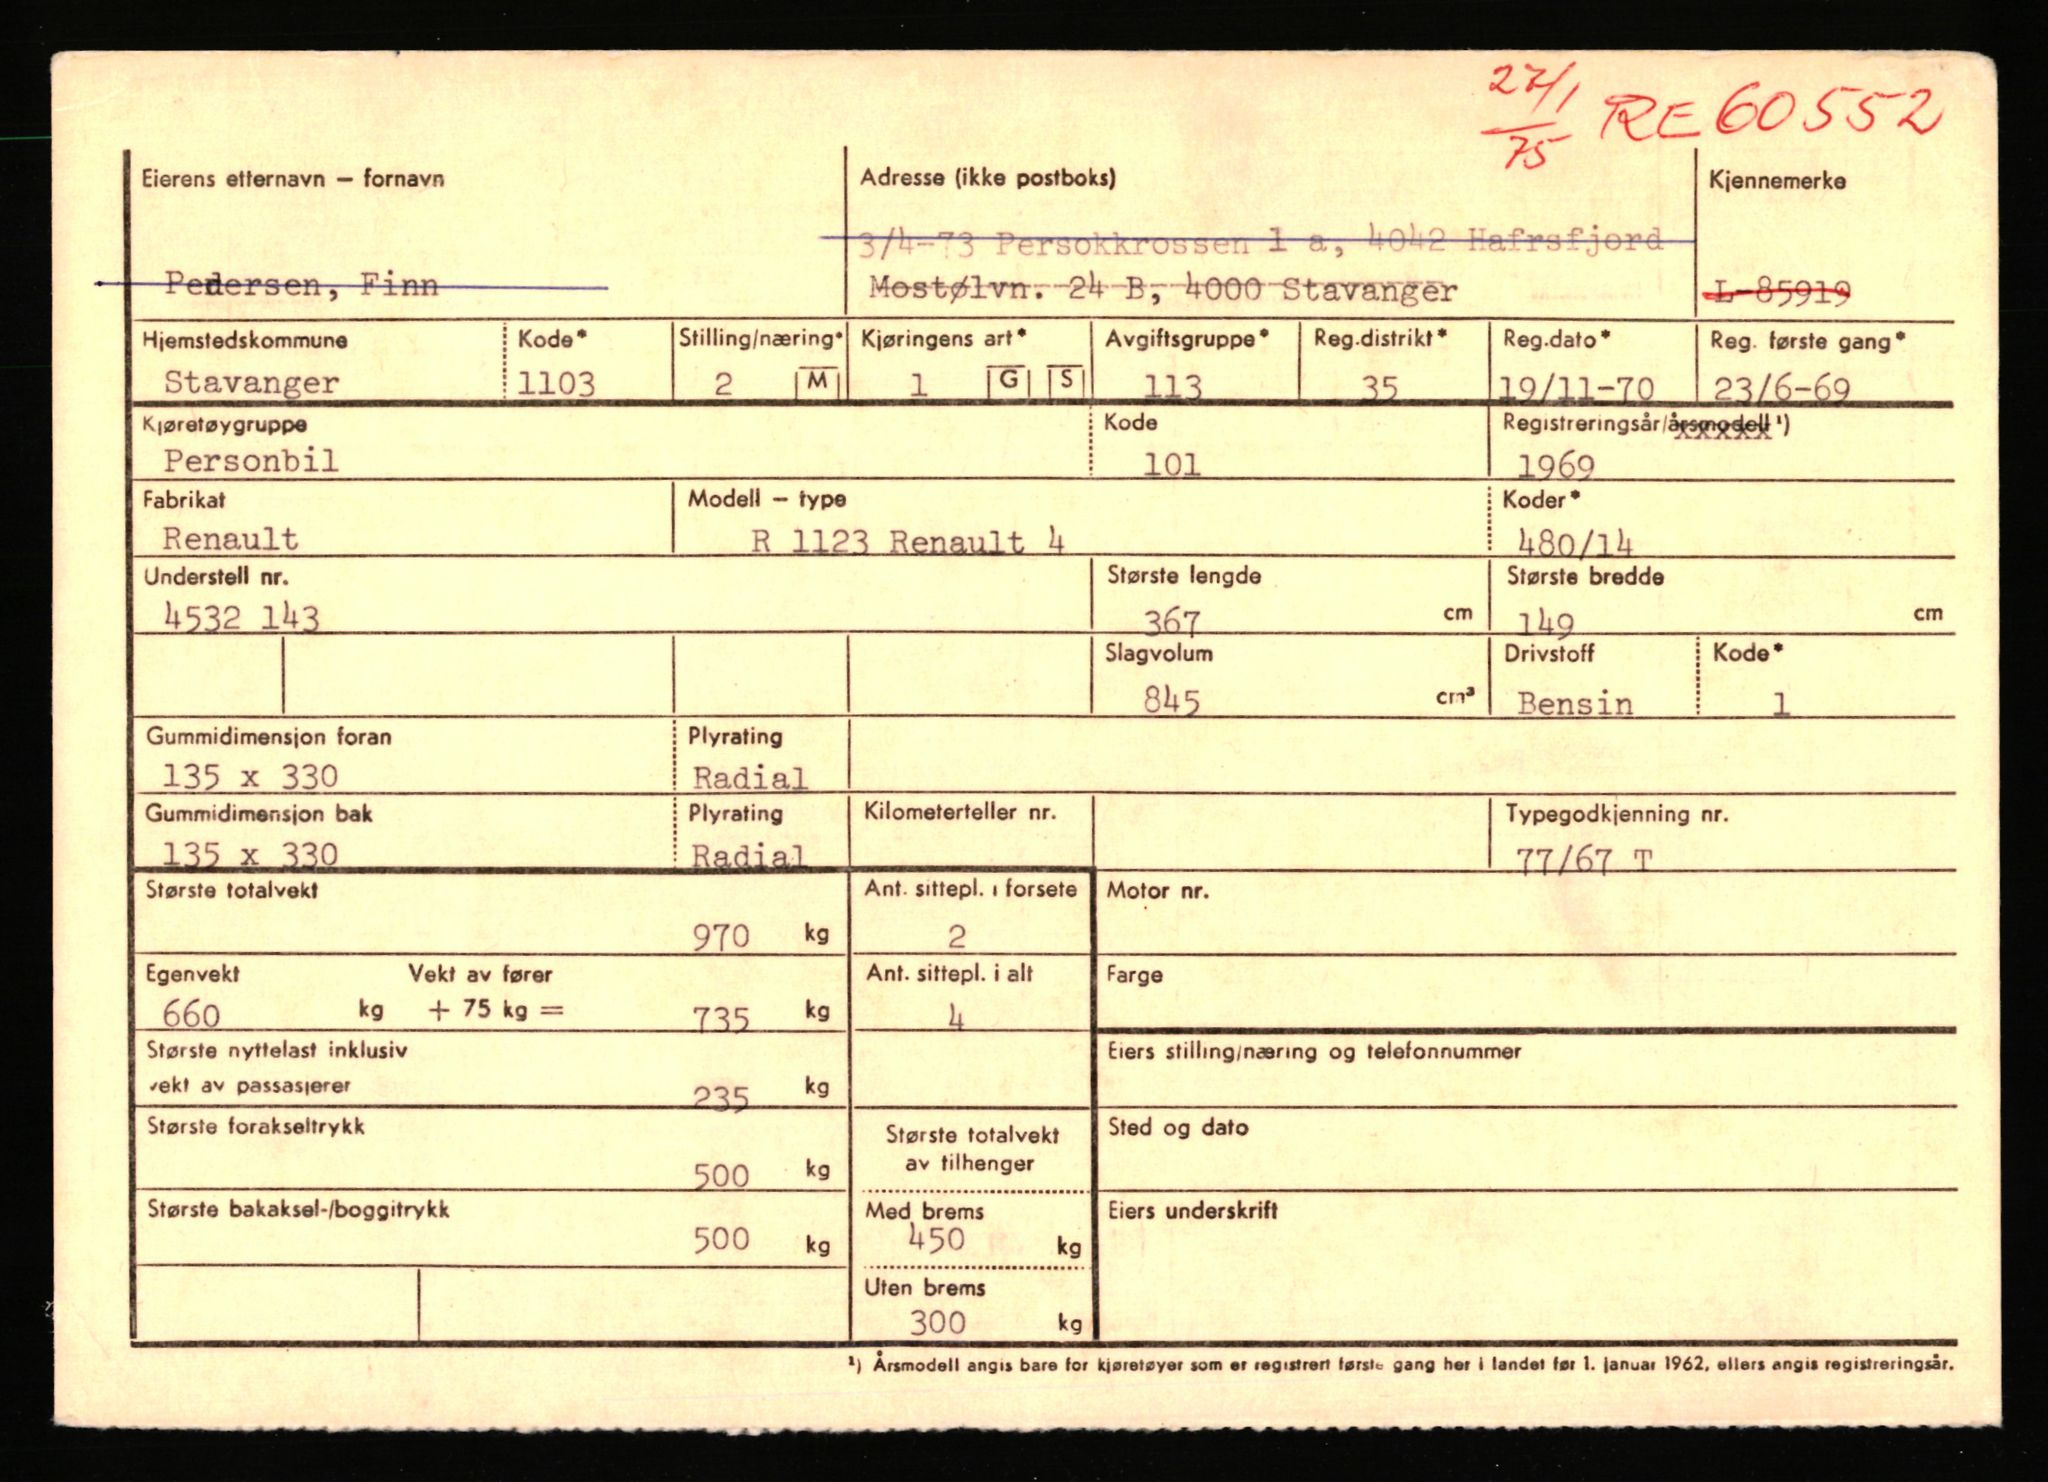 27/1
75 RE 60552
Eierens etternavn – fornavn Adresse (ikke postboks) Kjennemerke
3/4-73 Persokkrossen 1 a, 4042 Hafrsfjord
Pedersen, Finn Mostølvn. 24 B, 4000 Stavanger L-85919
Hjemstedskommune Kode* Stilling/næring* Kjøringens art* Avgiftsgruppe* Reg.distrikt* Reg.dato* Reg. første gang*
Stavanger 1103 2 M 1 G S 113 35 19/11-70 23/6-69
Kjøretøygruppe Kode Registreringsår/årsmodell ¹)
Personbil 101 1969
Fabrikat Modell – type Koder*
Renault R 1123 Renault 4 480/14
Understell nr. Største lengde Største bredde
4532 143 367 cm 149 cm
Slagvolum Drivstoff Kode*
845 cm³ Bensin 1
Gummidimensjon foran Plyrating
135 x 330 Radial
Gummidimensjon bak Plyrating Kilometerteller nr. Typegodkjenning nr.
135 x 330 Radial 77/67 T
Største totalvekt Ant. sittepl. i forsete Motor nr.
970 kg 2
Egenvekt Vekt av fører Ant. sittepl. i alt Farge
660 kg + 75 kg = 735 kg 4
Største nyttelast inklusiv Eiers stilling/næring og telefonnummer
vekt av passasjerer 235 kg
Største forakseltrykk Største totalvekt Sted og dato
av tilhenger
500 kg
Største bakaksel-/boggitrykk Med brems Eiers underskrift
500 kg 450 kg
Uten brems
300 kg
¹) Årsmodell angis bare for kjøretøyer som er registrert første gang her i landet før 1. januar 1962, ellers angis registreringsår.